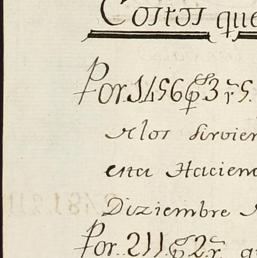 Costos que
Por 1456 p.s 3 r.s
Alos Sirvien
esta Haciend
Diziembre
Por 211 p.s 2 r.s q